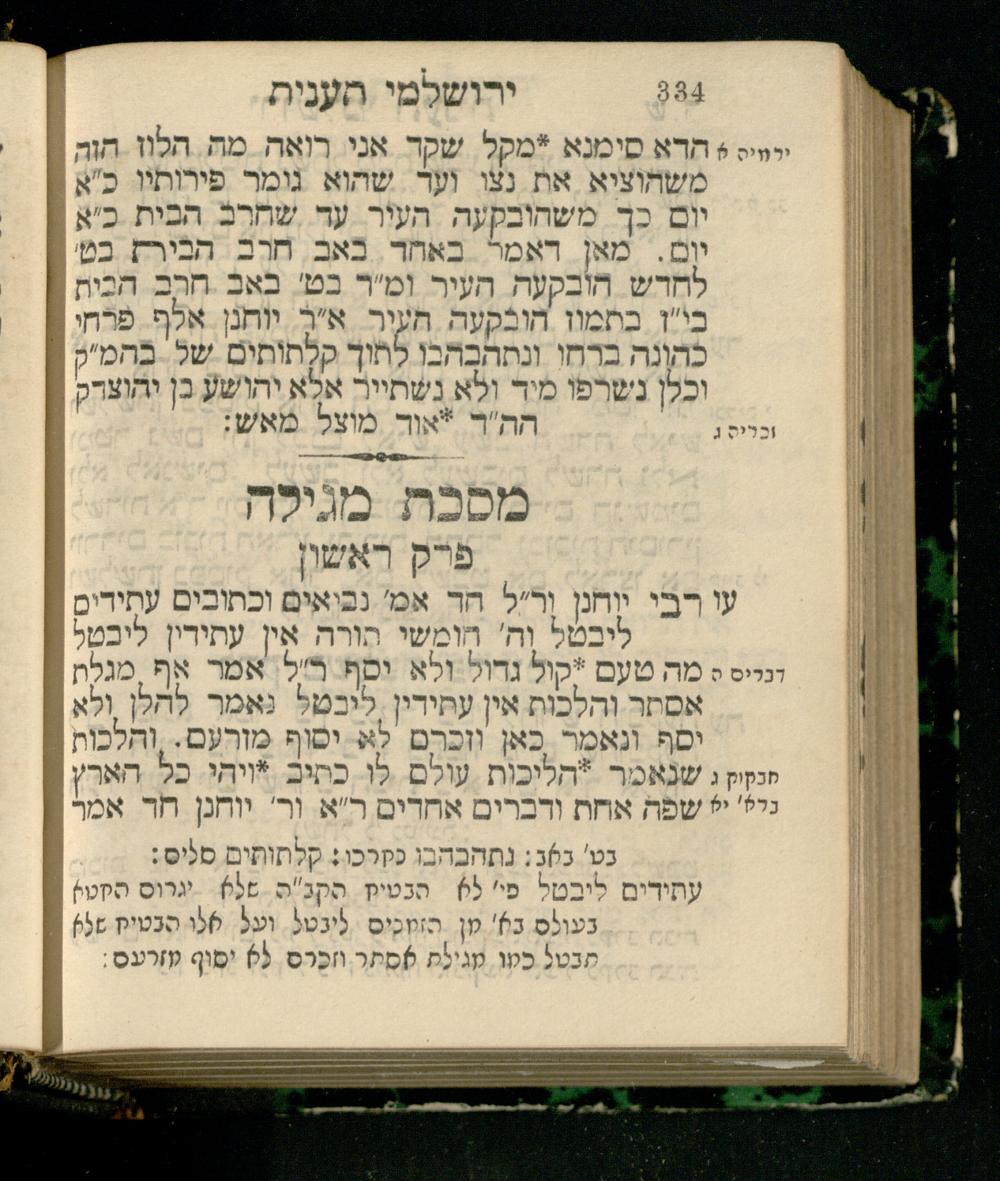 334 ירושלמי תענית
ירמיה א הדא סימנא *מקל שקד אני רואה מה הלוז הזה
משהוציא את נצו ועד שהוא גומר פירותיו כ"א
יום כך משהובקעה העיר עד שחרב הבית כ"א
יום. מאן דאמר באחד באב חרב הבית בט'
לחדש הובקעה העיר ומ"ד בט' באב חרב הבית
בי"ז בתמוז הובקעה העיר א"ר יוחנן אלף פרחי
כהונה ברחו ונתהבהבו לתוך קלתותים של בהמ"ק
וכלן נשרפו מיד ולא נשתייר אלא יהושע בן יהוצדק
זכריה ג הה"ד *אוד מוצל מאש:
מסכת מגילה
פרק ראשון
עו רבי יוחנן ור"ל חד אמ' נביאים וכתובים עתידים
ליבטל וה' חומשי תורה אין עתידין ליבטל
דברים ה מה טעם *קול גדול ולא יסף ר"ל אמר אף מגלת
אסתר והלכות אין עתידין ליבטל נאמר להלן ולא
יסף ונאמר כאן וזכרם לא יסוף מזרעם. והלכות
חבקוק ג שנאמר *הליכות עולם לו כתיב *ויהי כל הארץ
ברא' יא שפה אחת ודברים אחדים ר"א ור' יוחנן חד אמר
בט' באב: נתהבהבו נקרבו: קלתותים סלים:
עתידים ליבטל פי' לא הבטיח הקב"ה שלא יגרום החטא
בעולם בא' מן הזמנים ליבטל ועל אלו הבטיח שלא
תבטל כמו מגילת אסתר וזכרם לא יסוף מזרעם: